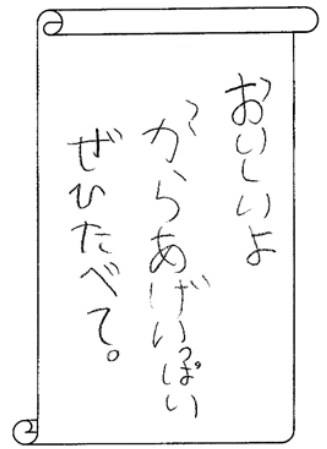 おいしいよ
からあげいっぱい
ぜひたべて。